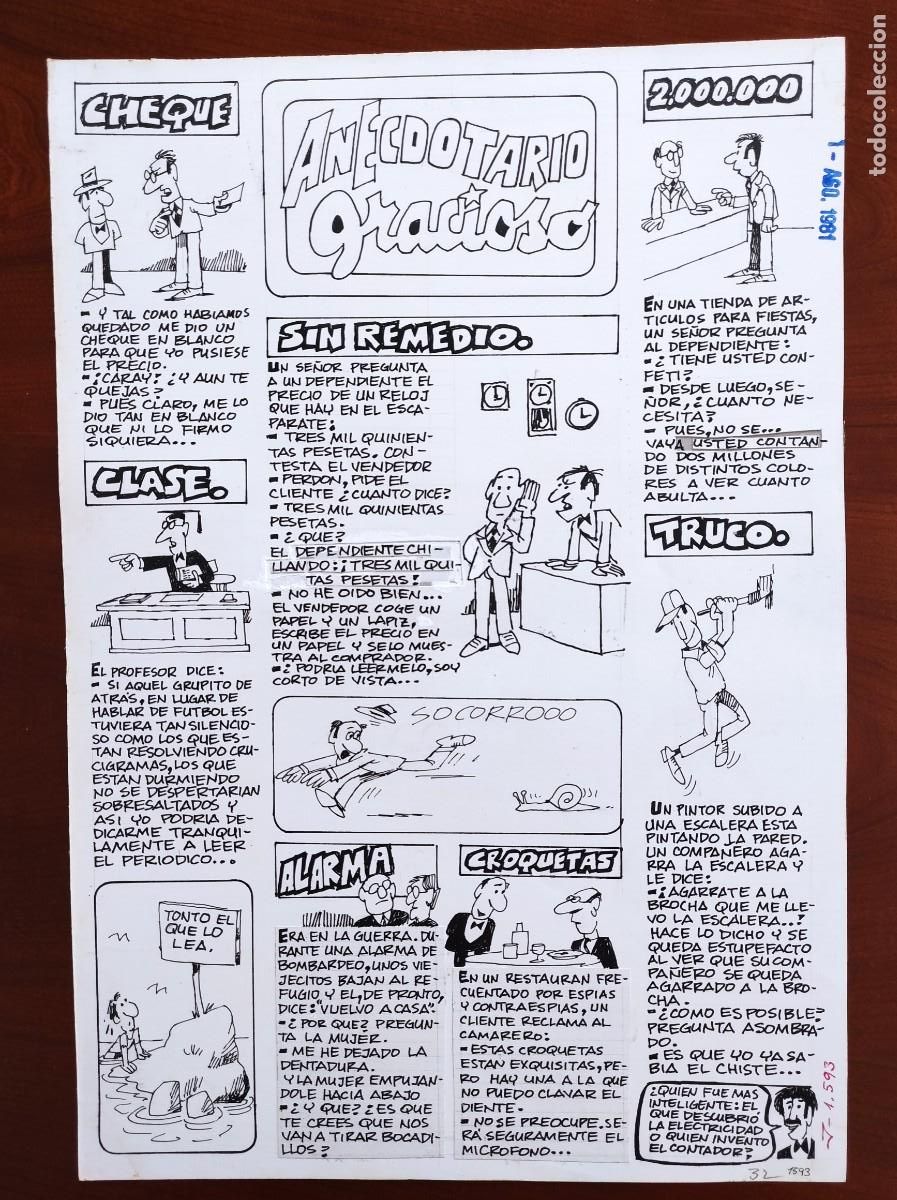 CHEQUE
- Y TAL COMO HABIAMOS
QUEDADO ME DIO UN
CHEQUE EN BLANCO
PARA QUE YO PUSIESE
EL PRECIO.
- ¡CARAY! ¿Y AUN TE
QUEJAS?
- PUES CLARO, ME LO
DIO TAN EN BLANCO
QUE NI LO FIRMO
SIQUIERA...
CLASE.
EL PROFESOR DICE:
- SI AQUEL GRUPITO DE
ATRÁS, EN LUGAR DE
HABLAR DE FUTBOL ES-
TUVIERA TAN SILENCIO-
SO COMO LOS QUE ES-
TAN RESOLVIENDO CRU-
CIGRAMAS, LOS QUE
ESTAN DURMIENDO
NO SE DESPERTARIAN
SOBRESALTADOS Y
ASI YO PODRIA DE-
DICARME TRANQUI-
LAMENTE A LEER
EL PERIODICO...
TONTO EL
QUE LO
LEA.
ANECDOTARIO
gracioso
SIN REMEDIO.
UN SEÑOR PREGUNTA
A UN DEPENDIENTE EL
PRECIO DE UN RELOJ
QUE HAY EN EL ESCA-
PARATE:
- TRES MIL QUINIEN-
TAS PESETAS. CON-
TESTA EL VENDEDOR
- PERDON, PIDE EL
CLIENTE ¿CUANTO DICE?
- TRES MIL QUINIENTAS
PESETAS.
- ¿QUE?
EL DEPENDIENTE CHI-
LLANDO: ¡TRES MIL QUI-
TAS PESETAS!
- NO HE OIDO BIEN...
EL VENDEDOR COGE UN
PAPEL Y UN LAPIZ,
ESCRIBE EL PRECIO EN
UN PAPEL Y SE LO MUES-
TRA AL COMPRADOR.
- ¿PODRIA LEERMELO, SOY
CORTO DE VISTA...
SOCORROOO
ALARMA
ERA EN LA GUERRA. DU-
RANTE UNA ALARMA DE
BOMBARDEO, UNOS VIE-
JECITOS BAJAN AL RE-
FUGIO Y EL, DE PRONTO,
DICE: "VUELVO A CASA".
- ¿POR QUE? PREGUN-
TA LA MUJER.
- ME HE DEJADO LA
DENTADURA.
Y LA MUJER EMPUJAN-
DOLE HACIA ABAJO
- ¿Y QUE? ¿ES QUE
TE CREES QUE NOS
VAN A TIRAR BOCADI-
LLOS?
CROQUETAS
EN UN RESTAURAN FRE-
CUENTADO POR ESPIAS
Y CONTRAESPIAS, UN
CLIENTE RECLAMA AL
CAMARERO:
- ESTAS CROQUETAS
ESTAN EXQUISITAS, PE-
RO HAY UNA A LA QUE
NO PUEDO CLAVAR EL
DIENTE.
- NO SE PREOCUPE. SE-
RÁ SEGURAMENTE EL
MICROFONO...
2.000.000
EN UNA TIENDA DE AR-
TICULOS PARA FIESTAS,
UN SEÑOR PREGUNTA
AL DEPENDIENTE:
- ¿TIENE USTED CON-
FETI?
- DESDE LUEGO, SE-
ÑOR, ¿CUANTO NE-
CESITA?
- PUES, NO SE...
VAYA USTED CONTAN-
DO DOS MILLONES
DE DISTINTOS COLO-
RES A VER CUANTO
ABULTA...
TRUCO.
UN PINTOR SUBIDO A
UNA ESCALERA ESTA
PINTANDO LA PARED.
UN COMPAÑERO AGA-
RRA LA ESCALERA Y
LE DICE:
- ¡AGARRATE A LA
BROCHA QUE ME LLE-
VO LA ESCALERA...!
HACE LO DICHO Y SE
QUEDA ESTUPEFACTO
AL VER QUE SU COM-
PAÑERO SE QUEDA
AGARRADO A LA BRO-
CHA.
- ¿COMO ES POSIBLE?
PREGUNTA ASOMBRA-
DO.
- ES QUE YO YA SA-
BIA EL CHISTE...
¿QUIEN FUE MAS
INTELIGENTE: EL
QUE DESCUBRIO
LA ELECTRICIDAD
O QUIEN INVENTO
EL CONTADOR?
1 - AGO. 1981
J-1.593
32
1593
todocoleccion